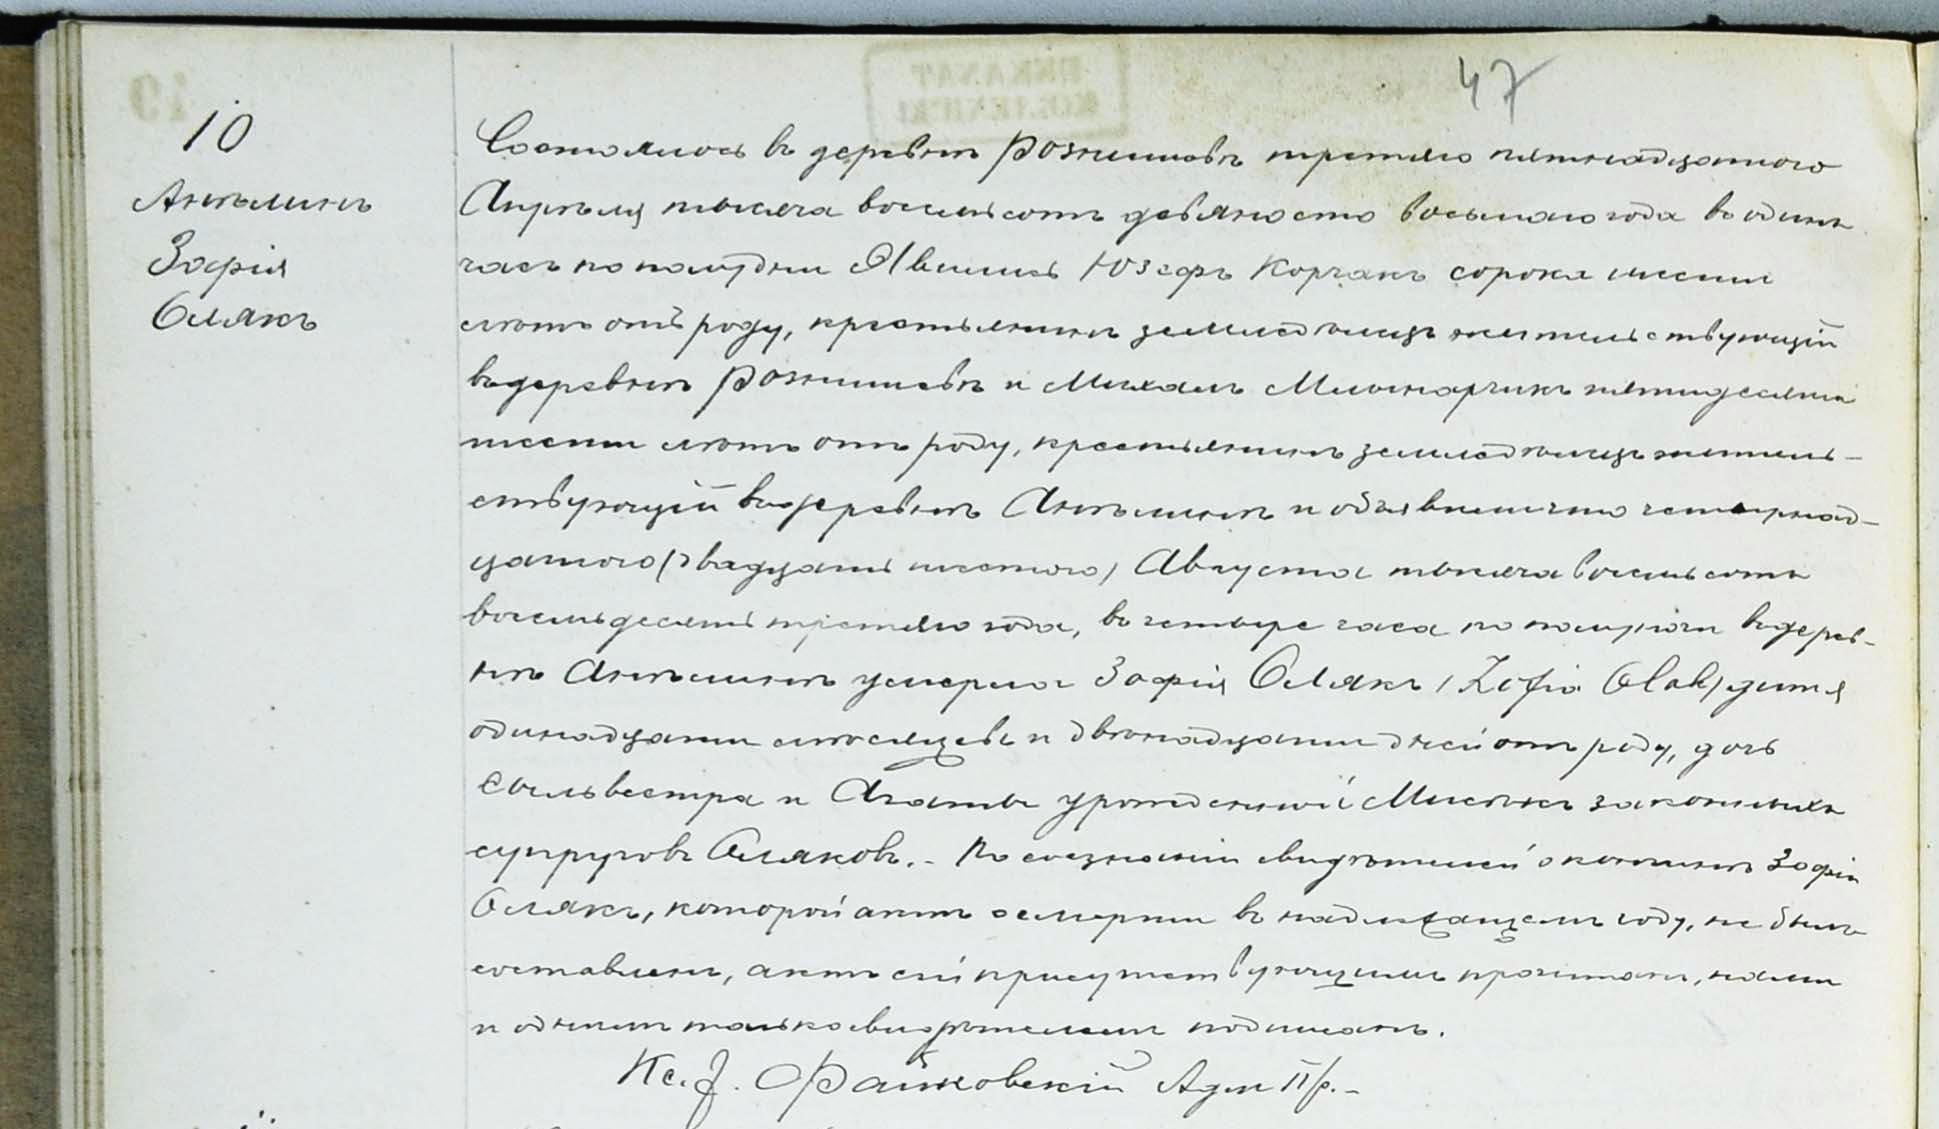 47
10
Анѣлинъ
Зофія
Олякъ
Состоялось въ деревнѣ Рознишевѣ третяго пятнадцатого
Апрѣля тысяча восемьсотъ девяносто восьмаго года въ одинъ
часъ по полудни Явились Юзефъ Корчакъ сорока шести
лѣтъ отъ роду, крестьянинъ земледѣлецъ жительствующій
въ деревнѣ Рознишевѣ и Михалъ Млынарчикъ пятидесяти
шести лѣтъ отъ роду, крестьянинъ земледѣлецъ житель-
ствующій въ деревнѣ Анѣлинѣ и объявили что четырнад-
цатого (двадцать шестого) Августа тысяча восемьсотъ
восемьдесятъ третяго года, въ четыре часа по полуночи въ дерев-
нѣ Анѣлинѣ умерла Зофія Олякъ (Zofia Olak) дитя
одинадцати мѣсяцевъ и двѣнадцати дней отъ роду, дочь
Сыльвестра и Агаты урожденной законныхъ
супруговъ Оляковъ.- По сознаніи свидѣтелей о кончинѣ Зофіи
Олякъ, которой актъ о смерти въ надлежащемъ году, не былъ
составленъ, актъ сей присутствующимъ прочитанъ, нами
и однимъ только свидѣтелемъ подписанъ.
Кс. J. Файковскій Адм Пр.-
DEKANAT
KOZIENICKI
19